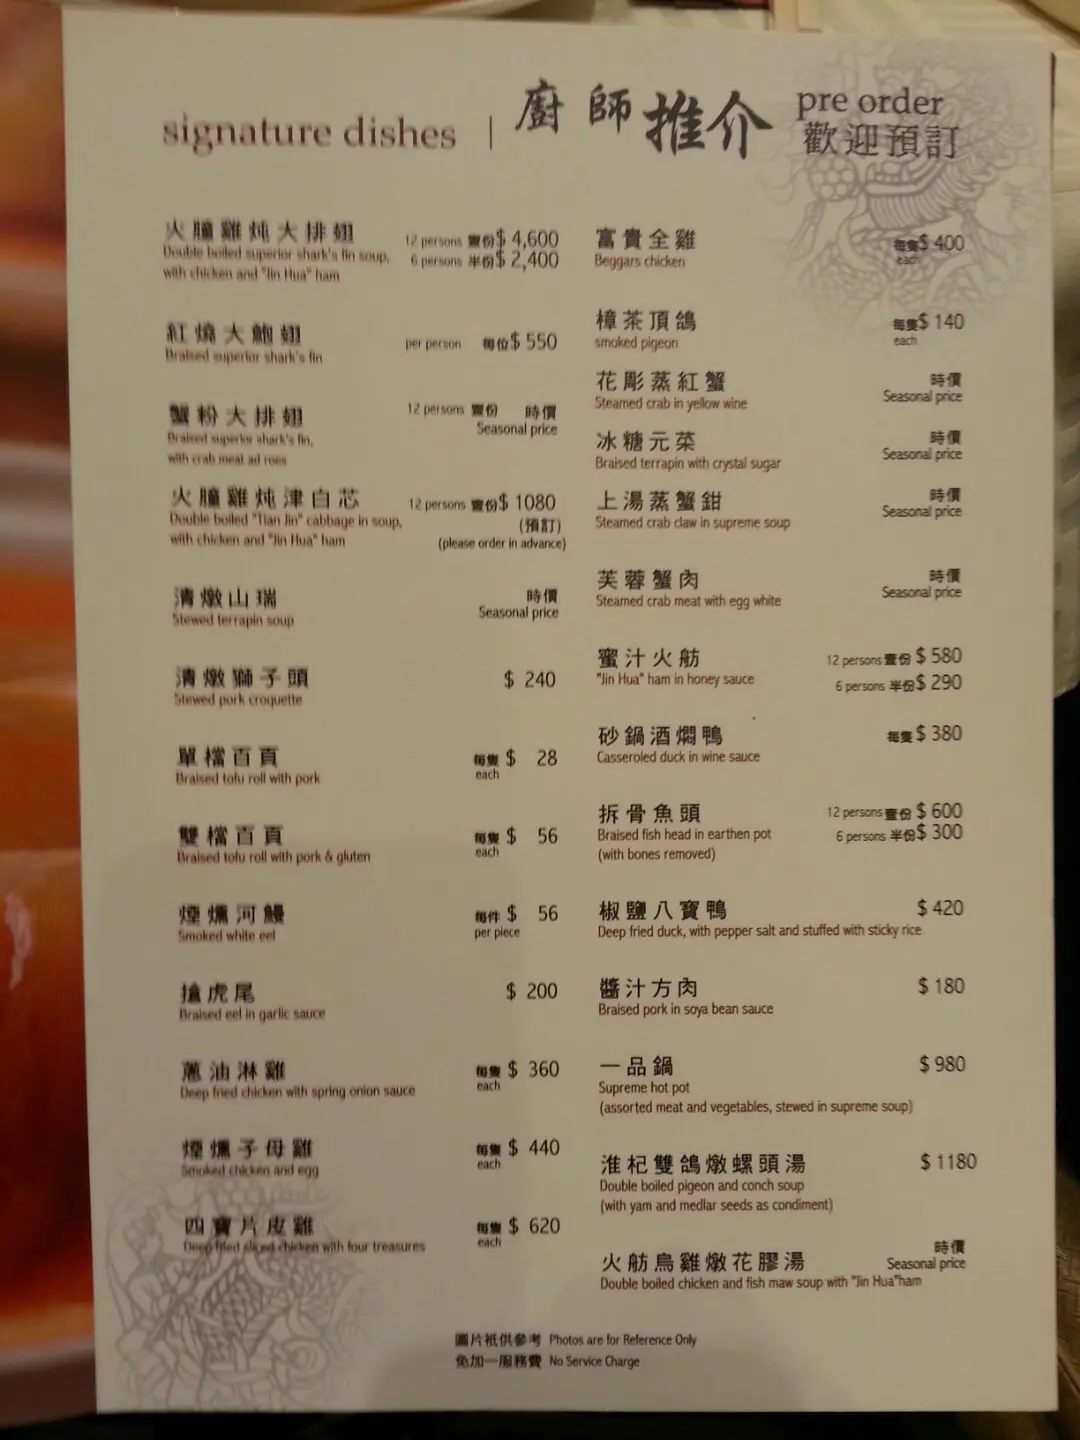 signature dishes | 廚師推介
pre order
歡迎預訂
火膧雞炖大排翅 12 persons 壹份 $ 4,600
Double boiled superior shark's fin soup, 6 persons 半份 $ 2,400
with chicken and "Jin Hua" ham
紅燒大鮑翅 per person 每位 $ 550
Braised superior shark's fin
蟹粉大排翅 12 persons 壹份 時價
Braised superior shark's fin, Seasonal price
with crab meat ad roes
火膧雞炖津白芯 12 persons 壹份 $ 1080
Double boiled "Tian Jin" cabbage in soup, (預訂)
with chicken and "Jin Hua" ham (please order in advance)
清燉山瑞 時價
Stewed terrapin soup Seasonal price
清燉獅子頭 $ 240
Stewed pork croquette
單檔百頁 每隻 $ 28
Braised tofu roll with pork each
雙檔百頁 每隻 $ 56
Braised tofu roll with pork & gluten each
煙燻河鰻 每件 $ 56
Smoked white eel per piece
搶虎尾 $ 200
Braised eel in garlic sauce
蔥油淋雞 每隻 $ 360
Deep fried chicken with spring onion sauce each
煙燻子母雞 每隻 $ 440
Smoked chicken and egg each
四寶片皮雞 每隻 $ 620
Deep fried sliced chicken with four treasures each
富貴全雞 每隻 $ 400
Beggars chicken each
樟茶頂鴿 每隻 $ 140
smoked pigeon each
花彫蒸紅蟹 時價
Steamed crab in yellow wine Seasonal price
冰糖元菜 時價
Braised terrapin with crystal sugar Seasonal price
上湯蒸蟹鉗 時價
Steamed crab claw in supreme soup Seasonal price
芙蓉蟹肉 時價
Steamed crab meat with egg white Seasonal price
蜜汁火舫 12 persons 壹份 $ 580
"Jin Hua" ham in honey sauce 6 persons 半份 $ 290
砂鍋酒燜鴨 每隻 $ 380
Casseroled duck in wine sauce
拆骨魚頭 12 persons 壹份 $ 600
Braised fish head in earthen pot 6 persons 半份 $ 300
(with bones removed)
椒鹽八寶鴨 $ 420
Deep fried duck, with pepper salt and stuffed with sticky rice
醬汁方肉 $ 180
Braised pork in soya bean sauce
一品鍋 $ 980
Supreme hot pot
(assorted meat and vegetables, stewed in supreme soup)
淮杞雙鴿燉螺頭湯 $ 1180
Double boiled pigeon and conch soup
(with yam and medlar seeds as condiment)
火舫烏雞燉花膠湯 時價
Double boiled chicken and fish maw soup with "Jin Hua"ham Seasonal price
圖片祇供參考 Photos are for Reference Only
免加一服務費 No Service Charge